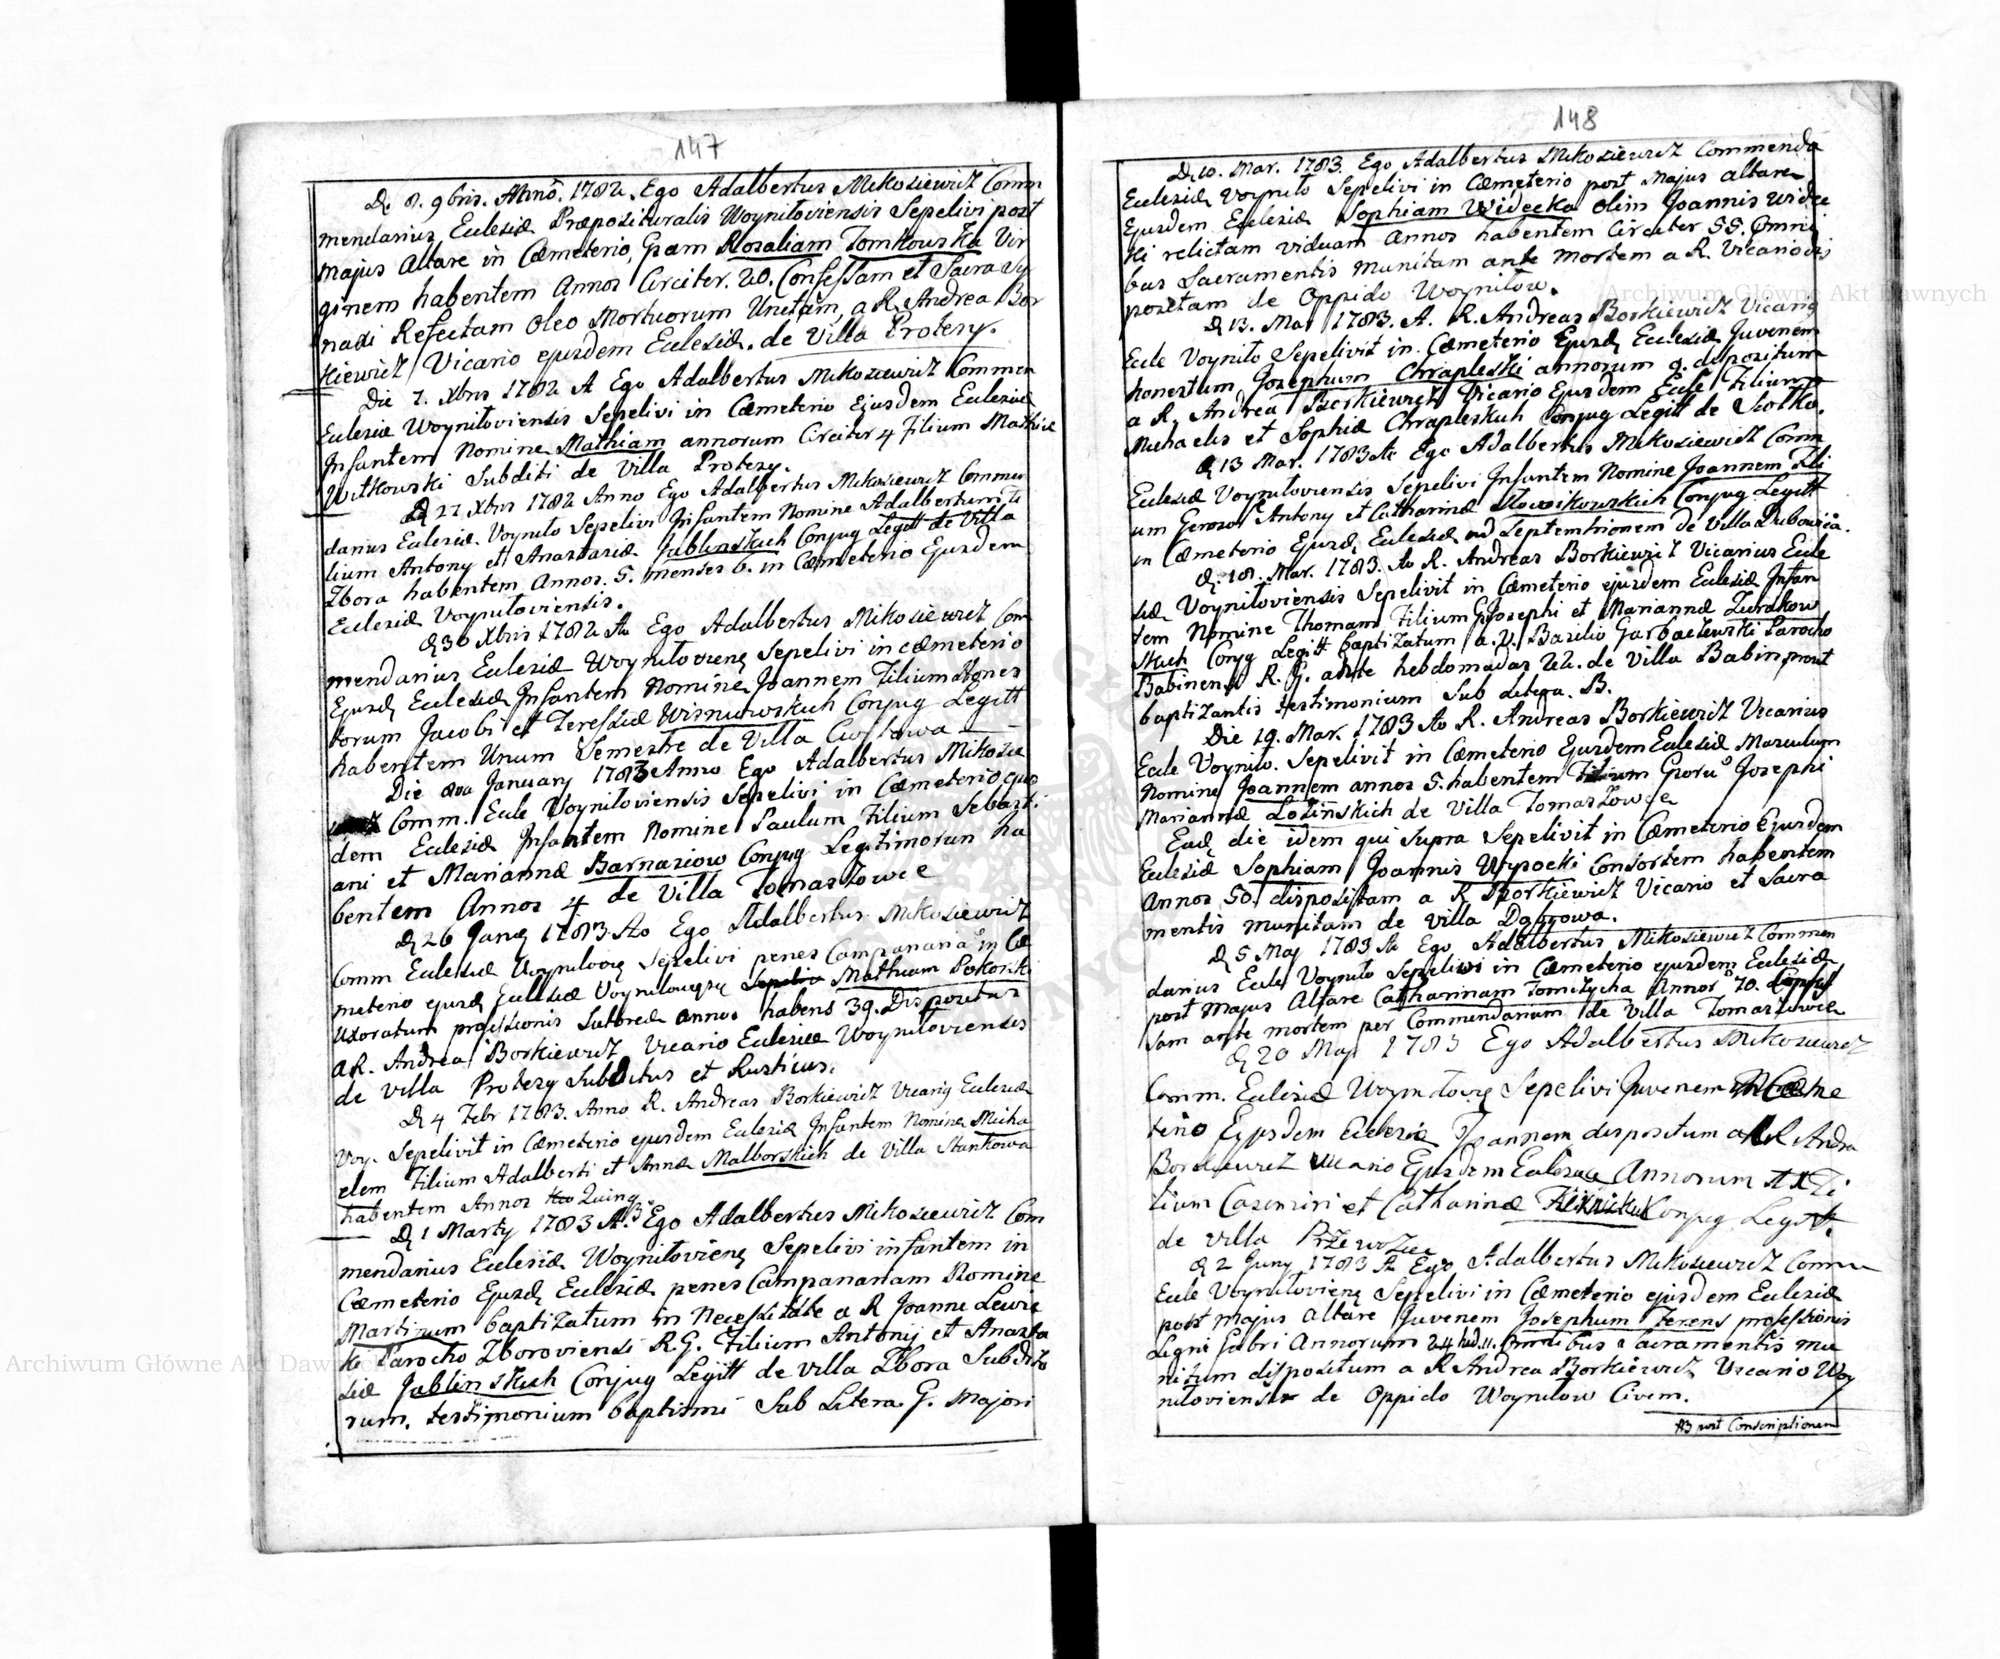 147
D. 8. 9bris. Anno. 1782. Ego Adalbertus Mikosiewicz Comm
mendarius Eclesiæ Præposituralis Woyniloviensis Sepelivi post
majus Altare in Cæmeterio, Gsam Rosaliam Tomkowska Vir
ginem habentem Annos Circiter. 20. Confessam et Sacra Sy
naxi Refectam Oleo Mortuorum Unctam, a R. Andrea Bor
kiewicz Vicario ejusdem Eclesiæ. de Villa Protesy.
Die 7. Xbris 1782 A Ego Adalbertus Mikosiewicz Commen
Eclesiæ Woyniloviensis Sepelivi in Cæmeterio Ejusdem Eclesiæ
Infantem Nomine Mathiam annorum Circiter 4 Filium Mathiæ
Witkowski Subditi de Villa Protesy.
D 22 Xbris 1782 Anno Ego Adalbertus Mikosiewicz Commen
darius Eclesiæ Voynilo Sepelivi Infantem Nomine Adalbertum Fi
lium Antony et Anastasiæ Jablinskich Conjug Legitt de Villa
Zbora habentem Annos. 5. menses 6. in Cæmeterio Ejusdem
Eclesiæ Voyniloviensis.
D 30 Xbris 1782 Ao Ego Adalbertus Mikosiewicz Com
mendarius Eclesiæ Woynilovienę Sepelivi in cæmeterio
Ejusdę Eclesiæ Infantem Nomine Joannem Filium Agnes
torum Jacobi et Teressiæ Wisniowskich Conjug Legitt
habentem Unum Semestre de Villa
Die 8va January 1783 Anno Ego Adalbertus Mikosie
Comm. Ecle Voyniloviensis Sepelivi in Cæmeterio ejus
dem Eclesiæ Infantem Nomine Paulum Filium Sebasti
ani et Mariannæ Barnasiow Conjug Legitimorum ha
bentem Annos 4 de Villa Tomaszowce
D 26 Janę 1783 Ao Ego Adalbertus Mikosiewicz
Comm Eclesiæ Woynilovię Sepelivi penes Campanaria in Cæ
meterio ejusdę Eclesiæ Voynilovięsę Sepelio Mathiam Pokorski
Uxoratum professionis Sutoreæ annos habens 39. Dispositus
a R. Andrea Borkiewicz Vicario Eclesiæ Woyniloviensis
de villa Protesy Subditus et Rusticus.
D 4 Febr 1783. Anno R. Andreas Borkiewicz Vicarię Eclesiæ
Voy. Sepelivit in Cæmeterio ejusdem Eclesiæ Infantem Nomine Micha
elem Filium Adalberti et Annæ Malborskich de Villa Stankowa
habentem Annos Quinq
D 1 Marty 1783 A. Ego Adalbertus Mikosiewicz Com
mendarius Eclesiæ Woynilovienę Sepelivi infantem in
Cæmeterio Ejusdę Eclesiæ penes Campanariam Nomine
Martinum baptizatum in Necessitate a R Joanne Lewic
ki Parocho Zboroviensi R.G. Filium Antonij et Anasta
siæ Jablinskich Conjug Legitt de villa Zbora Subdito
rum. testimonium baptismi Sub Litera G. Majori
148
D. 10. Mar. 1783. Ego Adalbertus Mikosiewicz Commenda
Eclesiæ Voynilo Sepelivi in Cæmeterio post Majus altare
Ejusdem Eclesiæ Sophiam Widecka olim Joannis Widec
ki relictam viduam Annos habentem Circiter 55. Omni
bus Sacramentis munitam ante mortem a R. Vicario dis
positam de Oppido Woynilow.
D 13. Mar 1783. A. R. Andreas Borkiewicz Vicarię
Ecle Voynilo Sepelivit in Cæmeterio Ejusdę Eclesiæ Juvenem
honestum Josephum Chrapleski annorum 9. dispositum
a R. Andrea Borkiewicz Vicario Ejusdem Ecle Filium
Michaelis et Sophiæ Chrapleskich Conjug Legitt de Siolko.
D 13 Mar. 1783 Ao Ego Adalbertus Mikosiewicz Comm
Eclesiæ Voyniloviensis Sepelivi Infantem Nomine Joannem Fili
um Generos Antony et Catharinæ Slowikowskich Conjug Legitt
in Cæmeterio Ejusdę Eclesiæ ad Septemtrionem de Villa Dubowica.
D. 18. Mar. 1783. Ao R. Andreas Borkiewicz Vicarius Ecle
siæ Voyniloviensis Sepelivit in Cæmeterio ejusdem Eclesiæ Infan
tem Nomine Thomam Filium G Josephi et Mariannæ Zurakow
skich Conjg Legitt baptizatum a V. Basilio Garbaczewski Parocho
Babinensi R. G. ante hebdomadas 22. de Villa Babin prout
baptizantis testimonium Sub litera. B.
Die 19. Mar. 1783 Ao R. Andreas Borkiewicz Vicarius
Ecle Voynilo. Sepelivit in Cæmeterio Ejusdem Eclesiæ Masculum
Nomine Joannem annos 5. habentem Filium Gsoru Josephi
Mariannæ Lozinskich de Villa Tomaszowce
Eadę die idem qui Supra Sepelivit in Cæmeterio Ejusdem
Eclesiæ Sophiam Joannis Wysocki Consortem habentem
Annos 50 dispositam a R Borkiewicz Vicario et Sacra
mentis munitam de villa Dąbrowa.
D 5 May 1783 Ao Ego Adalbertus Mikosiewicz Commen
darius Ecle Voynilo Sepelivi in Cæmeterio ejusdem Eclesiæ
post Majus Altare Catharinam Tomczycha Annos 70. Confes
sam ante mortem per Commendarium de Villa Tomaszowce
D 20 May 1783 Ego Adalbertus Mikosiewicz
Comm. Eclesiæ Woynilovię Sepelivi Juvenem in Cæme
terio Ejusdem Eclesiæ Joannem dispositum a R Andrea
Borkiewicz Vicario Ejusdem Eclesiæ Annorum Fi
lium Casimiri et Catharinæ Conjug Legitt.
de villa Przewoziec
D 2 Juny 1783 A Ego Adalbertus Mikosiewicz Comm
Ecle Voynilovienę Sepelivi in Cæmeterio ejusdem Eclesiæ
post majus altare Juvenem Josephum Ferens professionis
Ligni Fabri Annorum 24 Omnibus Sacramentis mu
nitum dispositum a R Andrea Borkiewicz Vicario Woy
niloviensi de Oppido Woynilow Civem.
post Conscriptionem
Archiwum Główne Akt Dawnych
Archiwum Główne Akt Dawnych